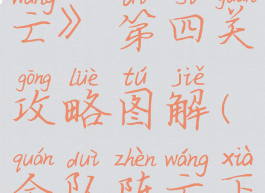 wáng dì sì guān
亡》第四关
gōng lüè tú jiě
攻略图解(
quán duì zhèn wáng xià
全队阵亡下